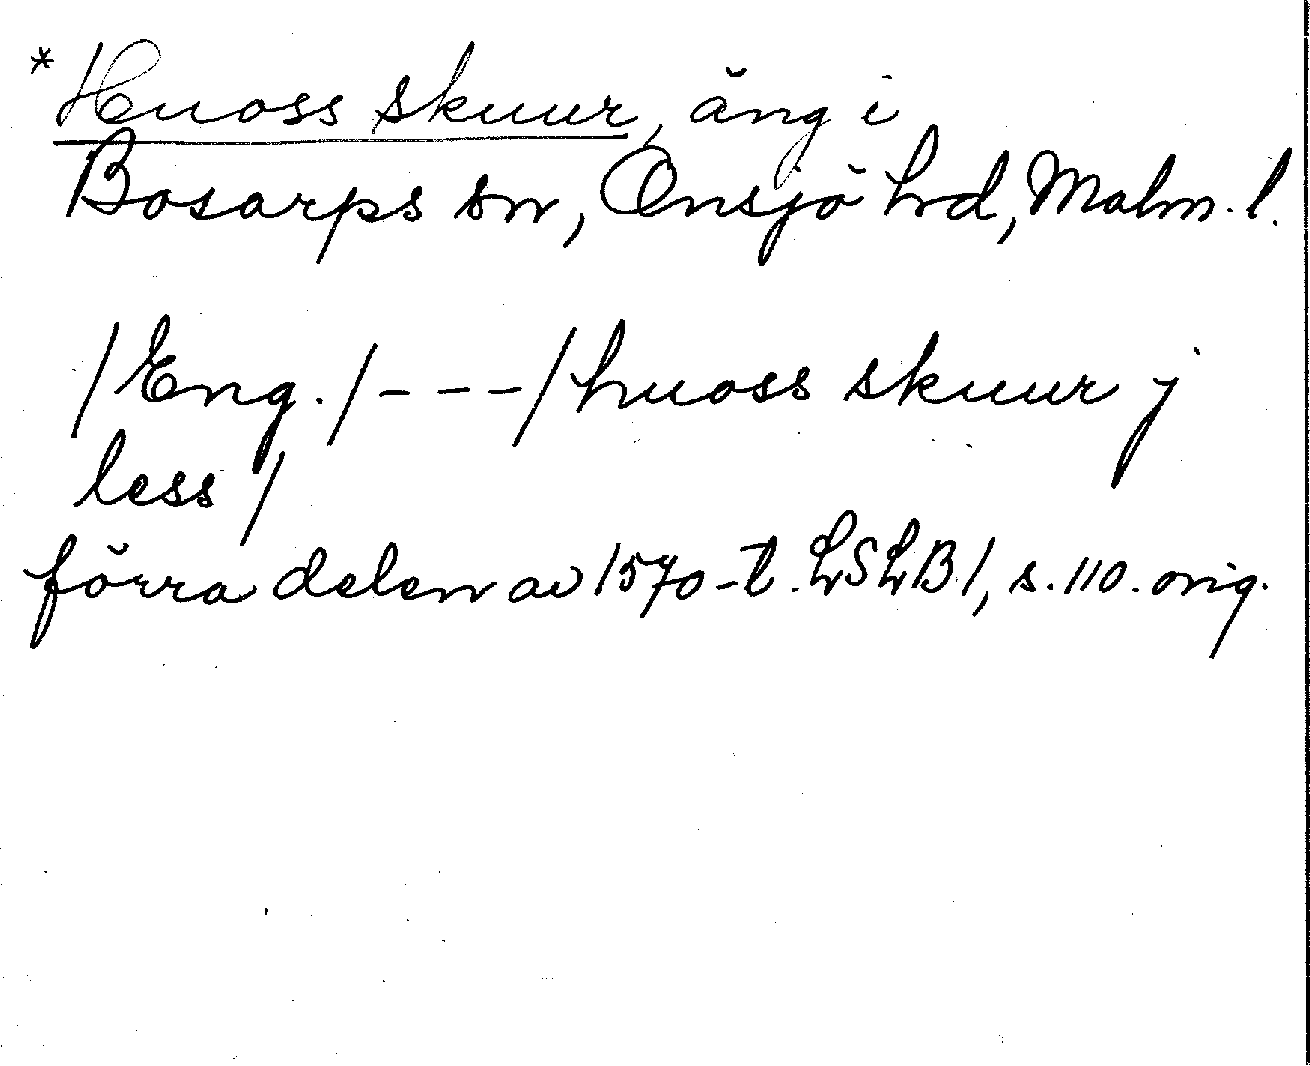 *Huoss skuur, äng i
Bosarps sn, Onsjö hrd, Malm. l.
/Eng./---/huoss skuur j
less/
förra delen av 1570-t. LSLB1, s. 110. orig.